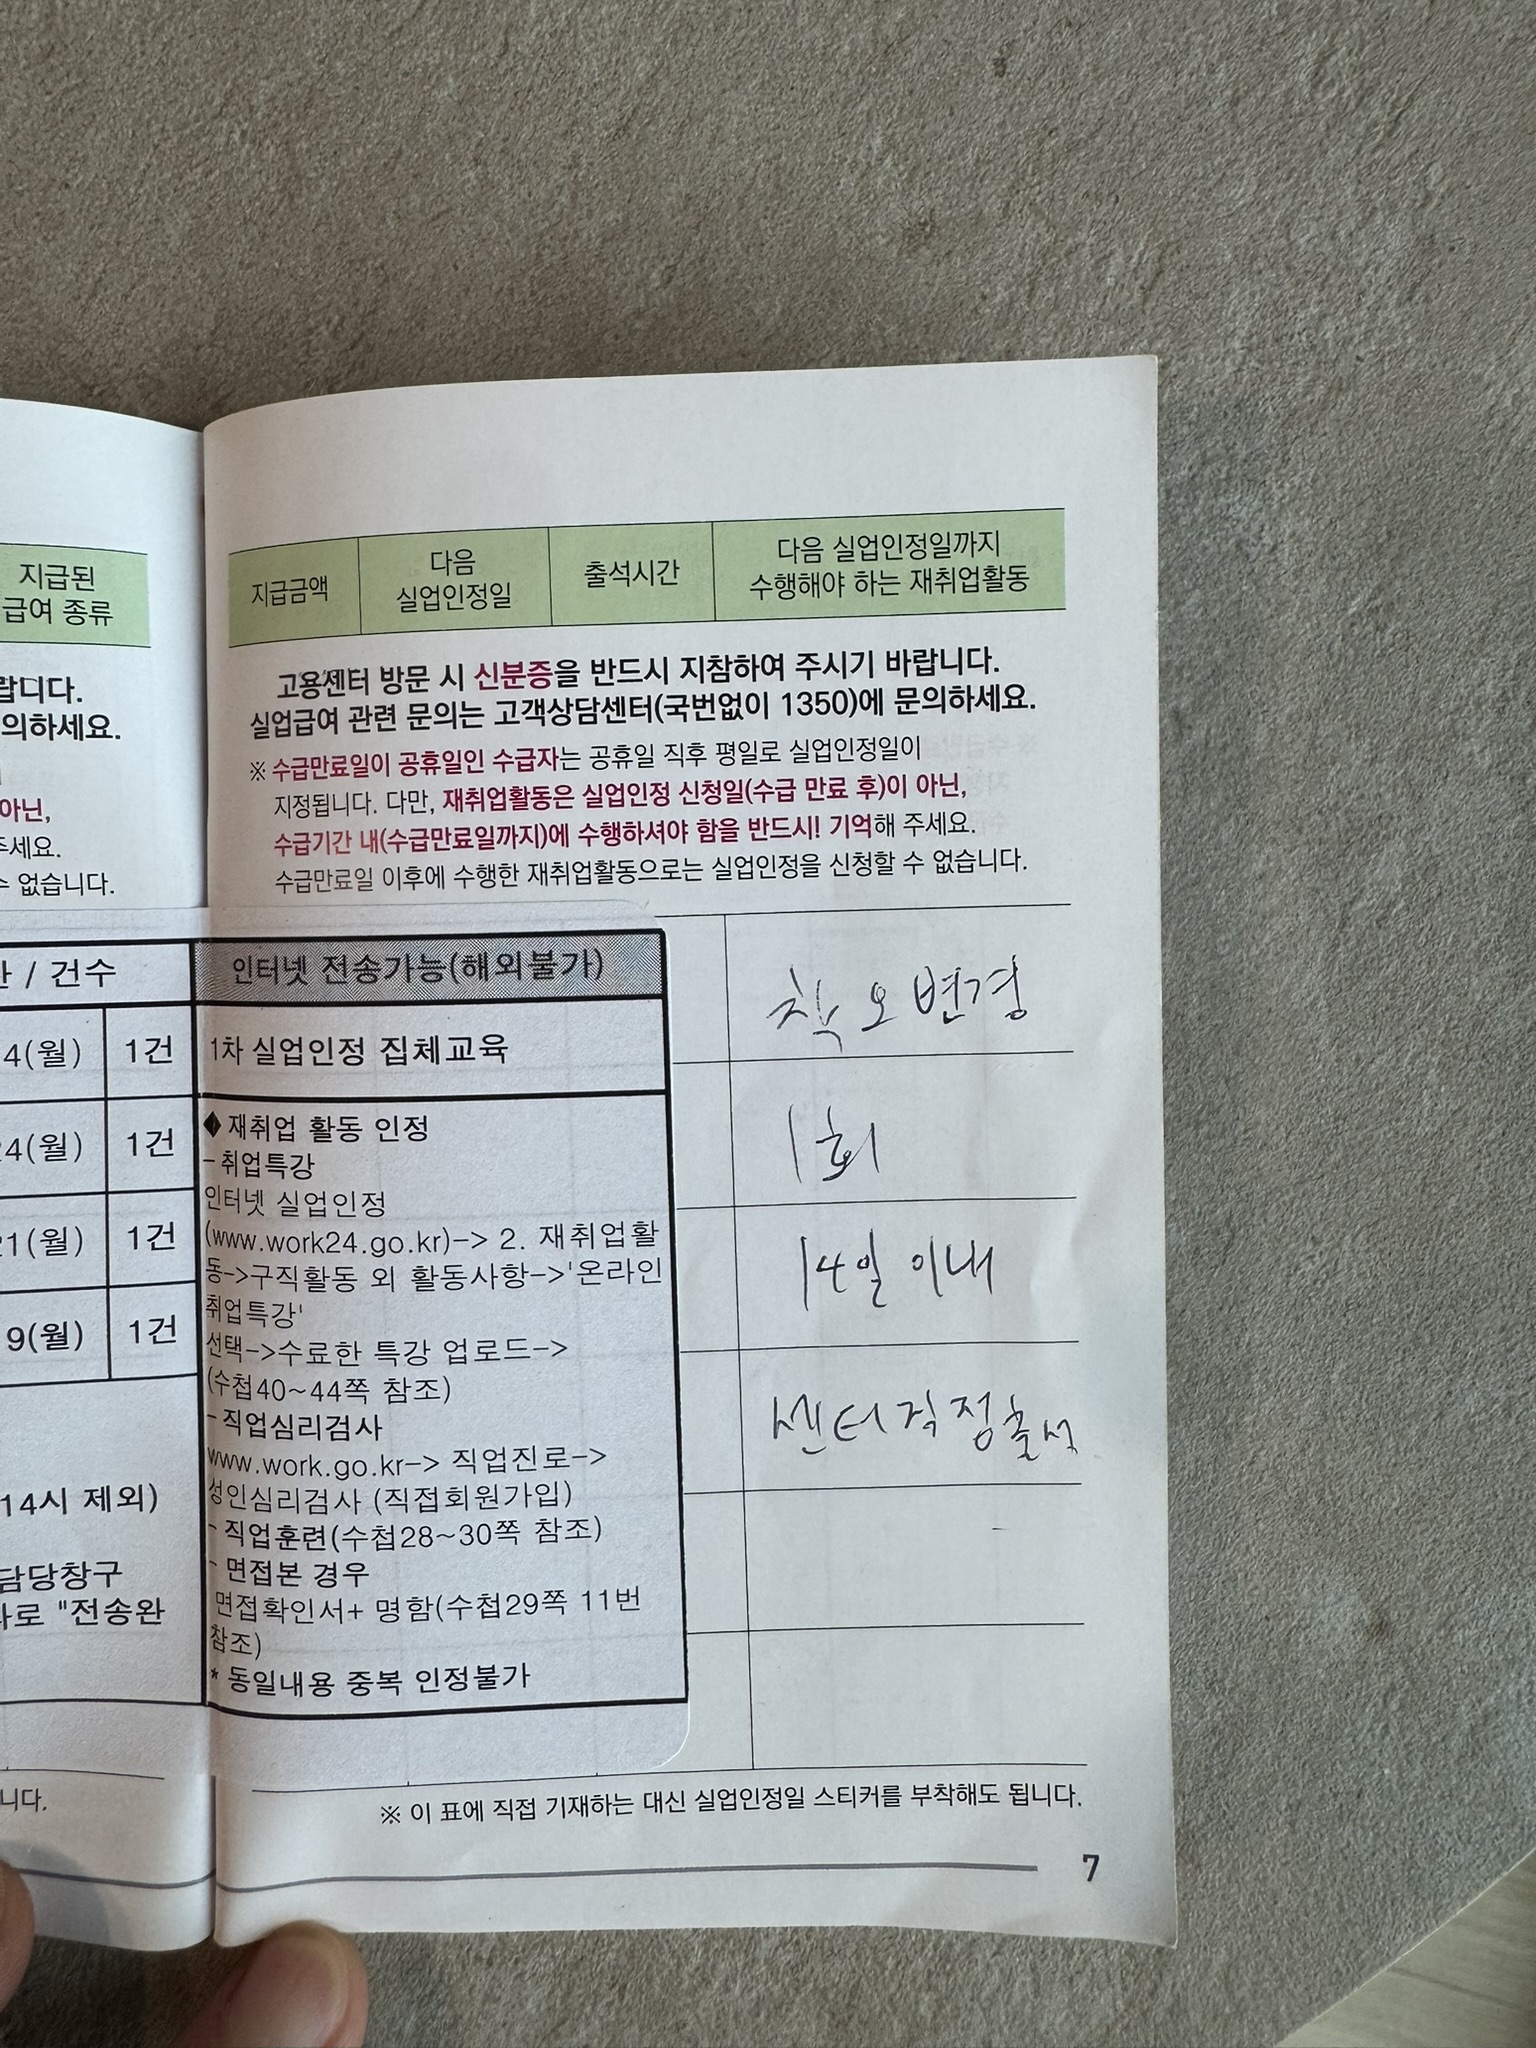 지급된
급여 종류
지급금액
다음
실업인정일
출석시간
다음 실업인정일까지
수행해야 하는 재취업활동
랍니다.
의하세요.
아닌,
주세요.
수 없습니다.
고용센터 방문 시 신분증을 반드시 지참하여 주시기 바랍니다.
실업급여 관련 문의는 고객상담센터(국번없이 1350)에 문의하세요.
※ 수급만료일이 공휴일인 수급자는 공휴일 직후 평일로 실업인정일이
지정됩니다. 다만, 재취업활동은 실업인정 신청일(수급 만료 후)이 아닌,
수급기간 내(수급만료일까지)에 수행하셔야 함을 반드시! 기억해 주세요.
수급만료일 이후에 수행한 재취업활동으로는 실업인정을 신청할 수 없습니다.
/ 건수
4(월) 1건
24(월) 1건
21(월) 1건
9(월) 1건
14시 제외)
담당창구
로 "전송완
니다.
인터넷 전송가능(해외불가)
1차 실업인정 집체교육
◆ 재취업 활동 인정
- 취업특강
인터넷 실업인정
(www.work24.go.kr)-> 2. 재취업활
동->구직활동 외 활동사항->'온라인
취업특강'
선택->수료한 특강 업로드->
(수첩40~44쪽 참조)
- 직업심리검사
www.work.go.kr-> 직업진로->
성인심리검사 (직접회원가입)
- 직업훈련(수첩28~30쪽 참조)
- 면접본 경우
면접확인서+ 명함(수첩29쪽 11번
참조)
* 동일내용 중복 인정불가
착오변경
1회
14일 이내
센터직접출석
※ 이 표에 직접 기재하는 대신 실업인정일 스티커를 부착해도 됩니다.
7